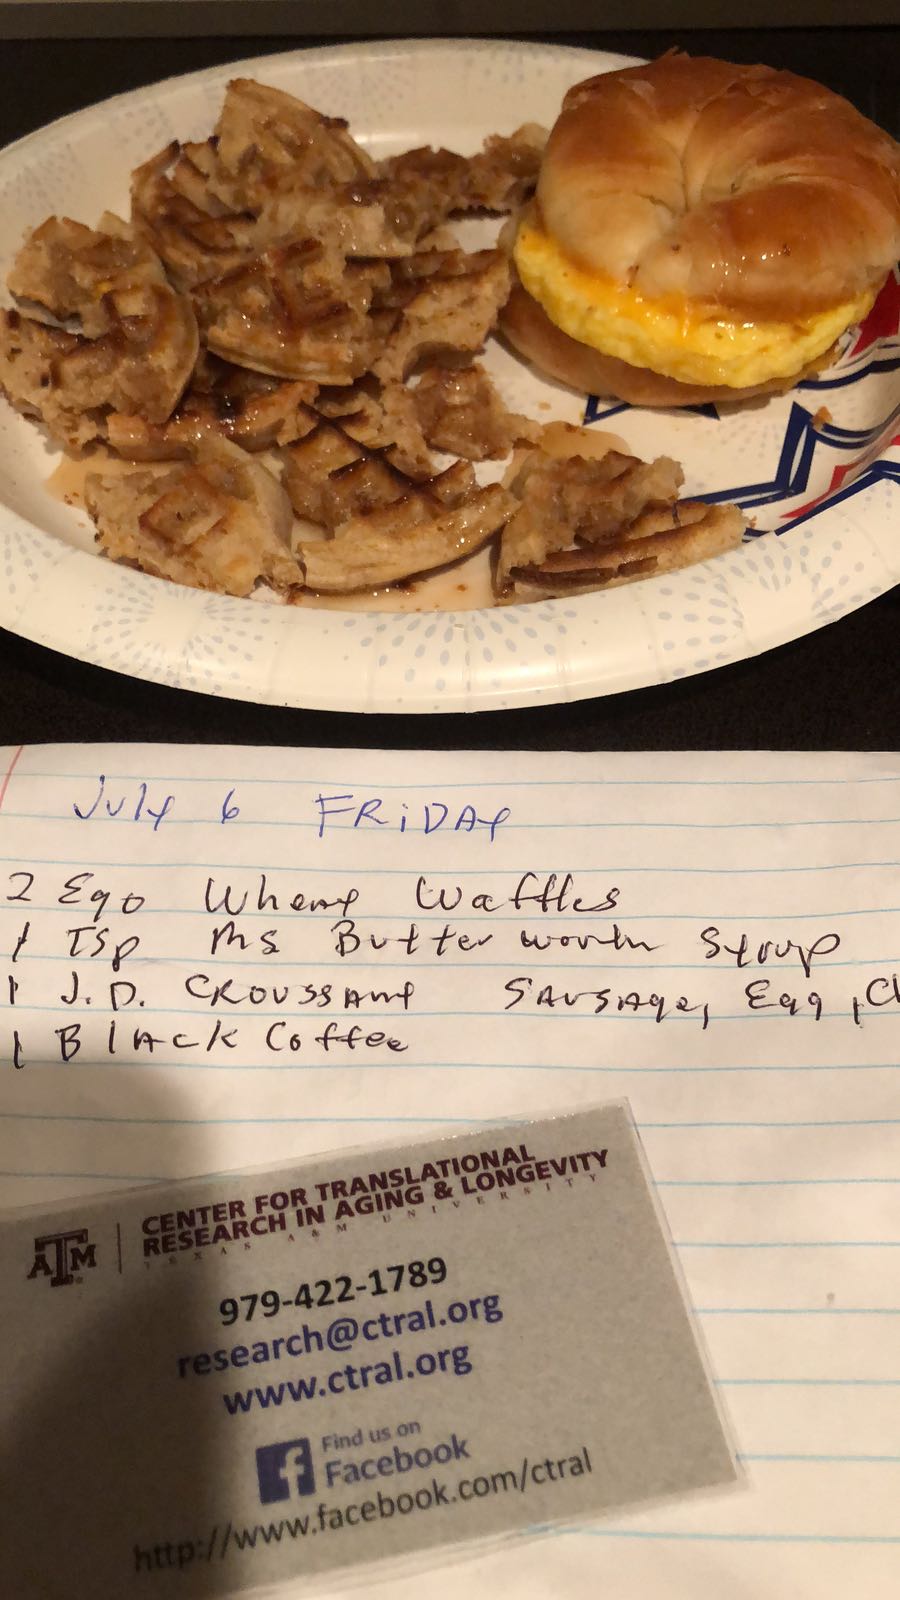 July 6 FRiDAy
2 Ego Wheat Waffles
1 Tsp Ms Butter worth Syrup
1 J.D. CROUSSANt SAUSAge, Egg, Ch
1 BlAck Coffee
ATM
CENTER FOR TRANSLATIONAL
RESEARCH IN AGING & LONGEVITY
TEXAS A&M UNIVERSITY
979-422-1789
research@ctral.org
www.ctral.org
f Find us on
Facebook
http://www.facebook.com/ctral